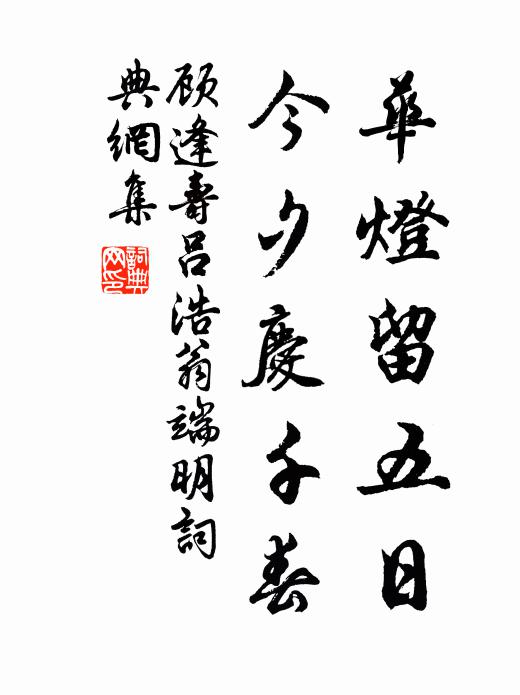 華燈留五日
今夕慶千春
顾逢壽呂浩翁端明詞
典網集
詞典
网印